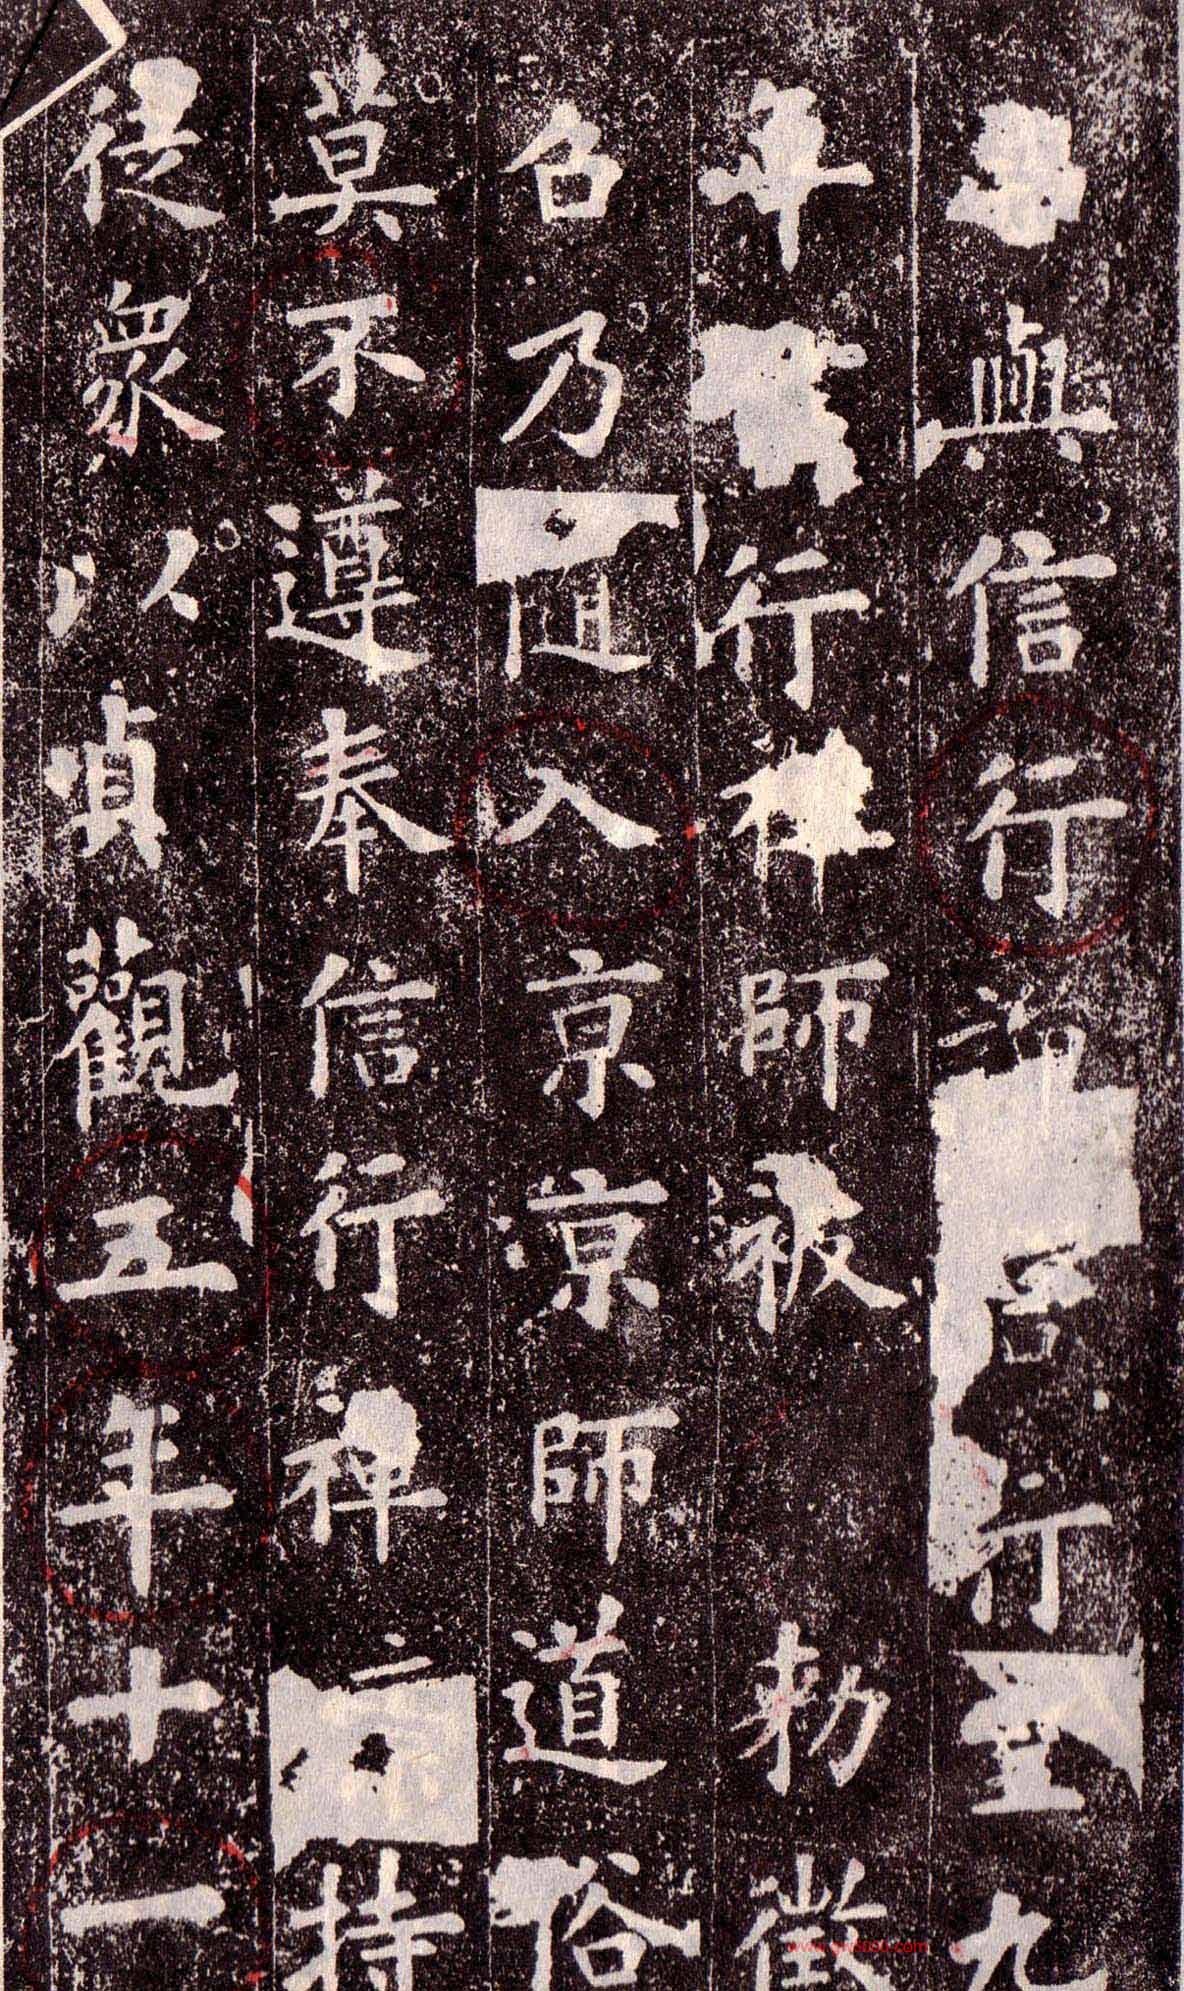 與信行行至九
年行禪師被勅徵
召乃入京京師道俗
莫不遵奉信行禪持
徒衆以貞觀五年十一
www.gtv8080.com